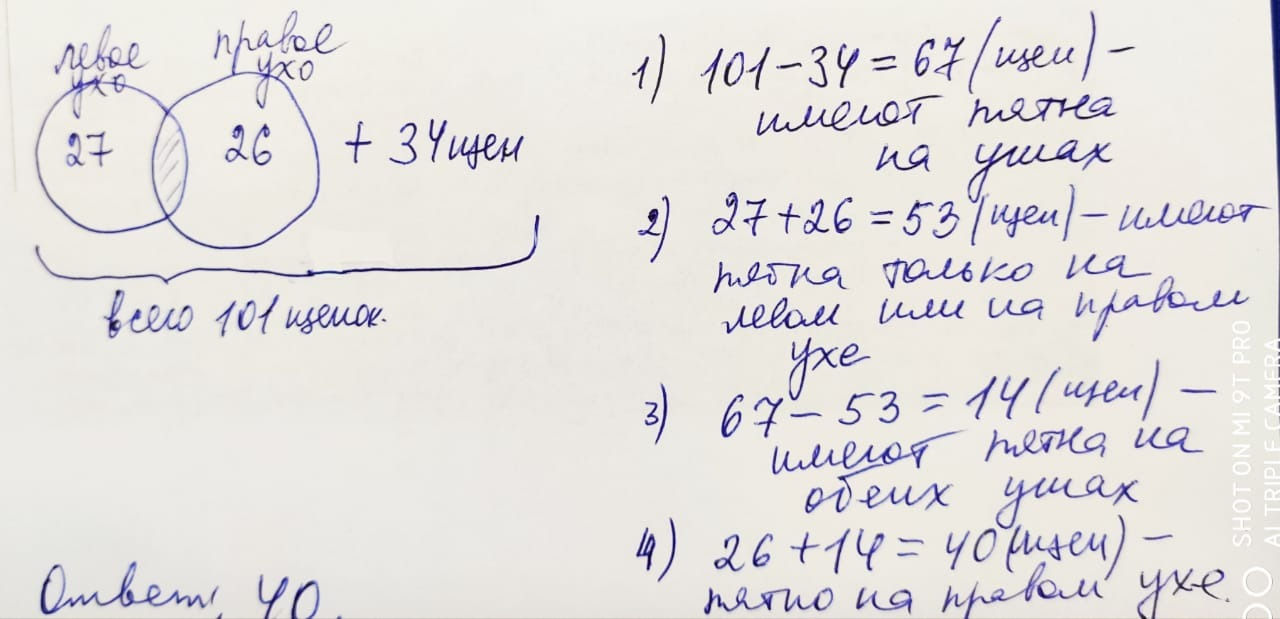 левое
ухо
правое
ухо
27
26
+ 34 щен
всего 101 щенок.
1) 101 - 34 = 67 (щен) -
имеют пятна
на ушах
2) 27 + 26 = 53 (щен) - имеют
пятна только на
левом или на правом
ухе
3) 67 - 53 = 14 (щен) -
имеют пятна на
обеих ушах
4) 26 + 14 = 40 (щен) -
пятно на правом ухе.
Ответ, 40.
SHOT ON MI 9T PRO
AI TRIPLE CAMERA